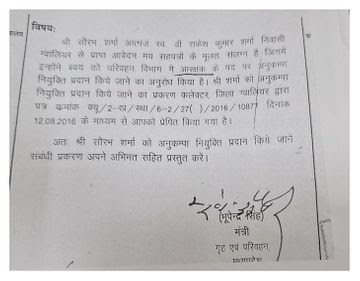 विषयः
श्री सौरभ शर्मा आत्मज स्व डॉ राकेश कुमार शर्मा निवासी
ग्वालियर से प्राप्त आवेदन मय सहपत्रों के मूलतः संलग्न है जिसमें
इन्होने स्वयं को परिवहन विभाग में आरक्षक के पद पर अनुकम्पा
नियुक्ति दिये जाने का अनुरोध किया है। श्री शर्मा को अनुकम्पा
नियुक्ति दिये जाने का प्रकरण कलेक्टर, जिला ग्वालियर द्वारा
पत्र कमांक क्यू/2-ख/स्था/6-2/27( )/2016/10877 दिनांक
12.08.2016 के माध्यम से आपको प्रेषित किया गया है।
अतः श्री सौरभ शर्मा को अनुकम्पा नियुक्ति प्रदान किये जाने
संबंधी प्रकरण अपने अभिमत सहित प्रस्तुत करें।
(भूपेन्द्र सिंह)
मंत्री
गृह एवं परिवहन,
मध्यप्रदेश